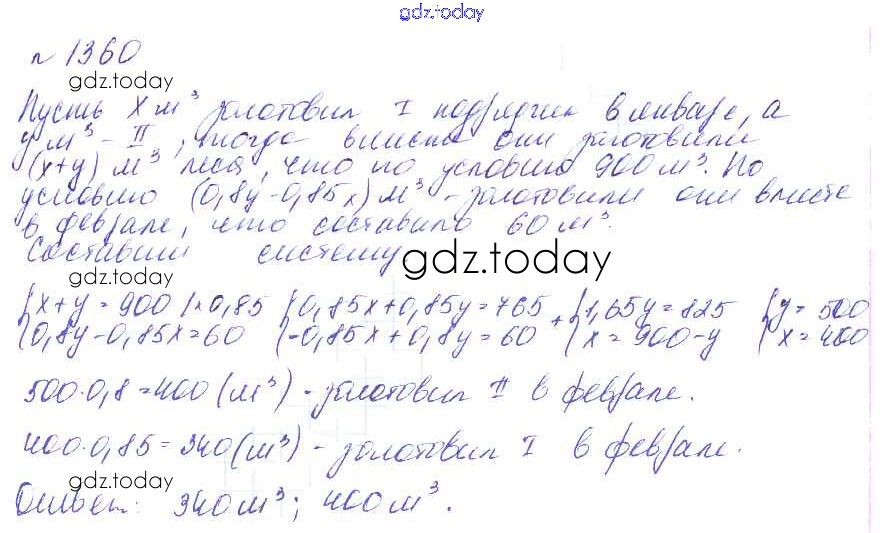 gdz.today
n 1360
gdz.today
Пусть x м³ заготовил I подрядчик в январе, а
y м³ - II, тогда вместе они заготовили
(x+y) м³ леса, что по условию 900 м³. По
условию (0,8y-0,85x) м³ - заготовили они вместе
в феврале, что составило 60 м³.
Составим систему.
gdz.today
gdz.today
{x+y=900 |×0,85 {0,85x+0,85y=765 + {1,65y=825 {y=500
{0,8y-0,85x=60 {-0,85x+0,8y=60 {x=900-y {x=400
500·0,8=400 (м³) - заготовил II в феврале.
400·0,85=340(м³) - заготовил I в феврале.
gdz.today
Ответ: 340 м³; 400 м³.